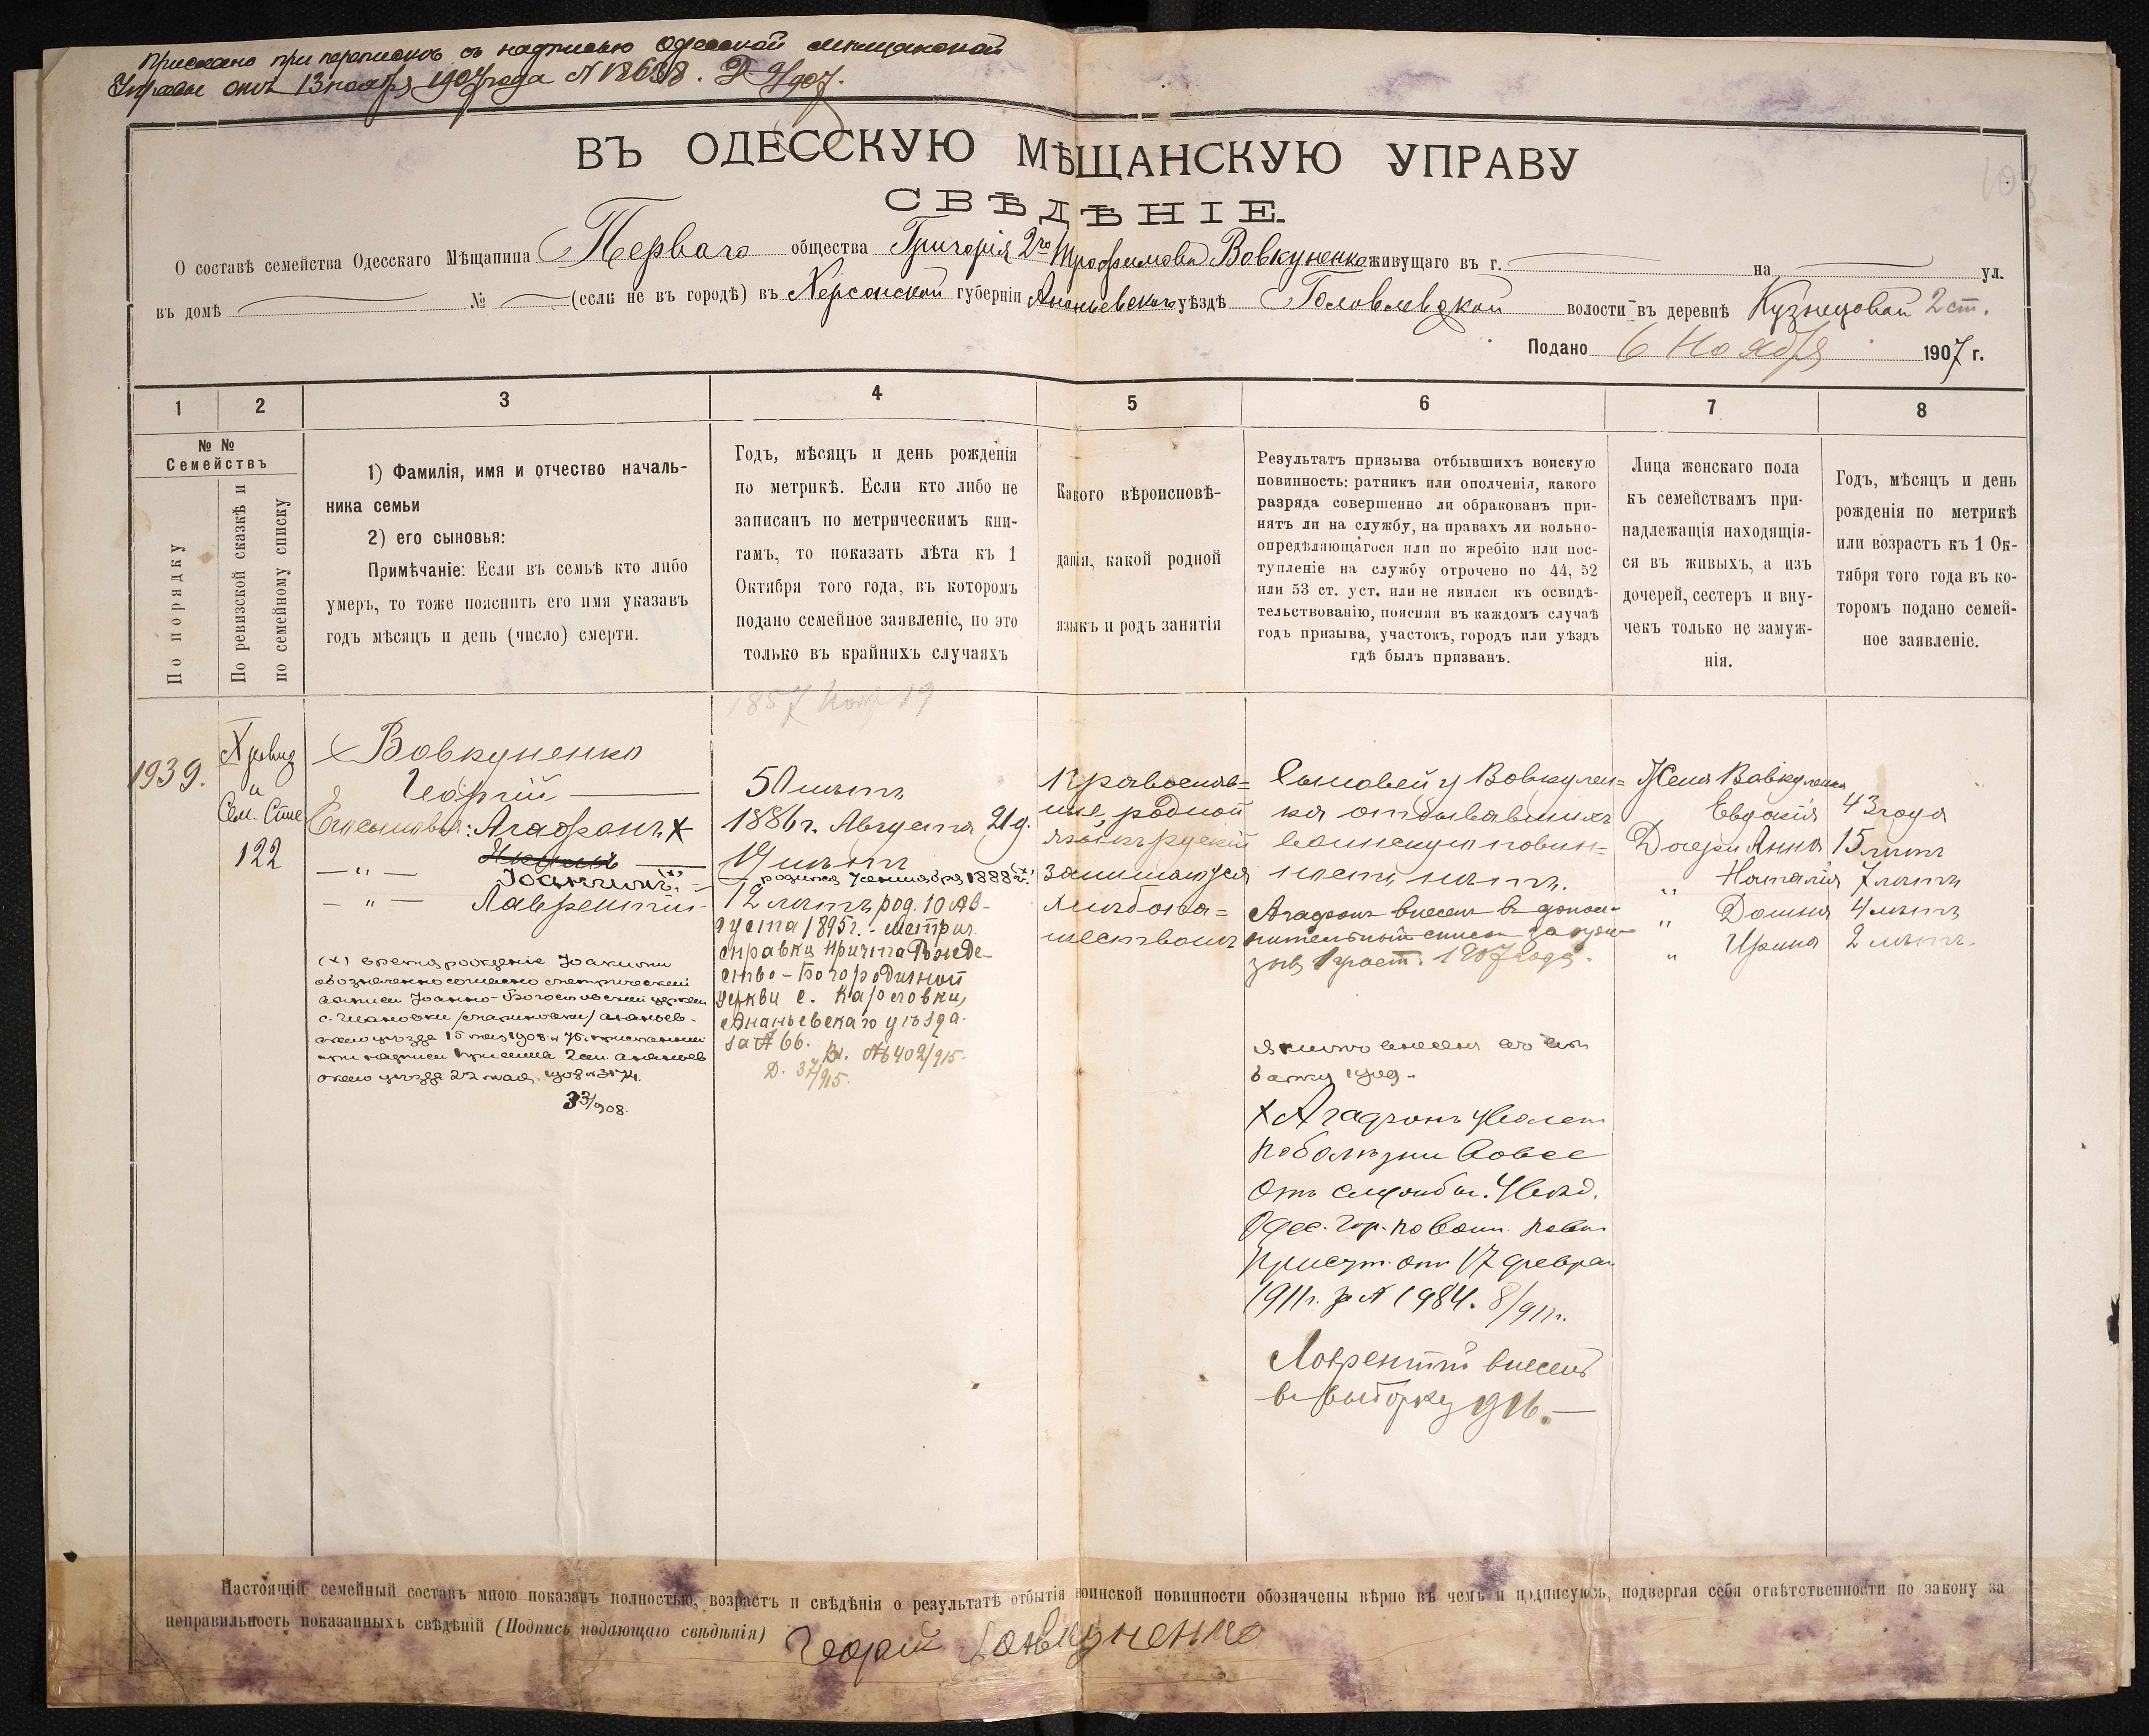 Прислано при перепискѣ съ надписью Одесской мѣщанской
Управы отъ 13 ноября 1907 года N 12638.
ВЪ ОДЕССКУЮ МѢЩАНСКУЮ УПРАВУ
СВѢДѢНІЕ.
О составѣ семейства Одесскаго Мѣщанина Перваго общества Григорія 2го Трофимова Вовкуненко живущаго въ г. на ул.
въ домѣ № (если не въ городѣ) въ Херсонской губерніи Ананьевскаго уѣздѣ Головлевской волости въ деревнѣ Кузнецовой 2 ст.
Подано 6 Ноября 1907 г.
1 2 3 4 5 6 7 8
№ №
Семействъ
По порядку
По ревизской сказкѣ и
по семейному списку
1) Фамилія, имя и отчество началь-
ника семьи
2) его сыновья:
Примѣчаніе: Если въ семьѣ кто либо
умеръ, то тоже пояснить его имя указавъ
годъ мѣсяцъ и день (число) смерти.
Годъ, мѣсяцъ и день рожденія
по метрикѣ. Если кто либо не
записанъ по метрическимъ кни-
гамъ, то показать лѣта къ 1
Октября того года, въ которомъ
подано семейное заявленіе, но это
только въ крайнихъ случаяхъ
Какого вѣроисповѣ-
данія, какой родной
языкъ и родъ занятія
Результатъ призыва отбывшихъ воискую
повинность: ратникъ или ополченія, какого
разряда совершенно ли обракованъ при-
нятъ ли на службу, на правахъ ли вольно-
опредѣляющагося или по жребію или пос-
тупленіе на службу отрочено по 44, 52
или 53 ст. уст. или не явился къ освидѣ-
тельствованію, поясняя въ каждомъ случаѣ
годъ призыва, участокъ, городъ или уѣздъ
гдѣ былъ призванъ.
Лица женскаго пола
къ семействамъ при-
надлежащія находящія-
ся въ живыхъ, а изъ
дочерей, сестеръ и вну-
чекъ только не замуж-
нія.
Годъ, мѣсяцъ и день
рожденія по метрикѣ
или возрастъ къ 1 Ок-
тября того года въ ко-
торомъ подано семей-
ное заявленіе.
1857 Нояб 19
1939.
X ревиз
и
Сем. Спис
122
Х Вовкуненко
Георгій
Его сыновья: Агафонъ Х
— " — Іоакимъ (х)
— " — Лаврентій
(х) время рожденіе Іоакима
обозначенно согласно метрической
выписи Іоанно-Богословской церкви
с. Ивановки
скаго уѣзда 15 мая 1908 N 76
скаго уѣзда 22 мая 1908
33/908.
50 лѣтъ
1886 г. Августа 21 д.
19 лѣтъ
родился 7 сентября 1888 г.
12 лѣтъ род. 10 Ав-
густа 1895 г. - метрич.
справка причта Рожде-
ство-Богородичной
церкви с. Карловки,
Ананьевскаго уѣзда
за N 66. Вх. N 6402/915.
Д. 37/915.
Православ=
ные, родной
языкъ рускій
занимаются
хлѣбопа=
шествомъ
Сыновей у Вовкулен=
ка отбывавшихъ
воинскую повин=
ность нѣтъ.
Агафонъ внесенъ въ допол-
нительный списокъ
зыв. 1 участ. 1907 года.
Якимъ внесенъ
1909.
Х Агафонъ уволен
по болѣзни вовсе
отъ службы. Увѣд.
Одес. Гор. по воин. пов.
присут. отъ 17 феврал
1911 г. за N 1984. 8/911 г.
Лаврентій внесенъ
въ выборку 1916. —
Жена Вовкуленка
Евдокія 43 года
Дочери Анна 15 лѣтъ
" Наталія 7 лѣтъ
" Домна 4 лѣтъ
" Ирина 2 лѣтъ
Настоящій семейный составъ мною показанъ полностью, возрастъ и свѣдѣнія о результатѣ отбытія воинской повинности обозначены вѣрно въ чемъ и подписуюсь, подвергая себя отвѣтственности по закону за
неправильность показанныхъ свѣдѣній (Подпись подающаго свѣдѣнія) Георгій Вовкуненко